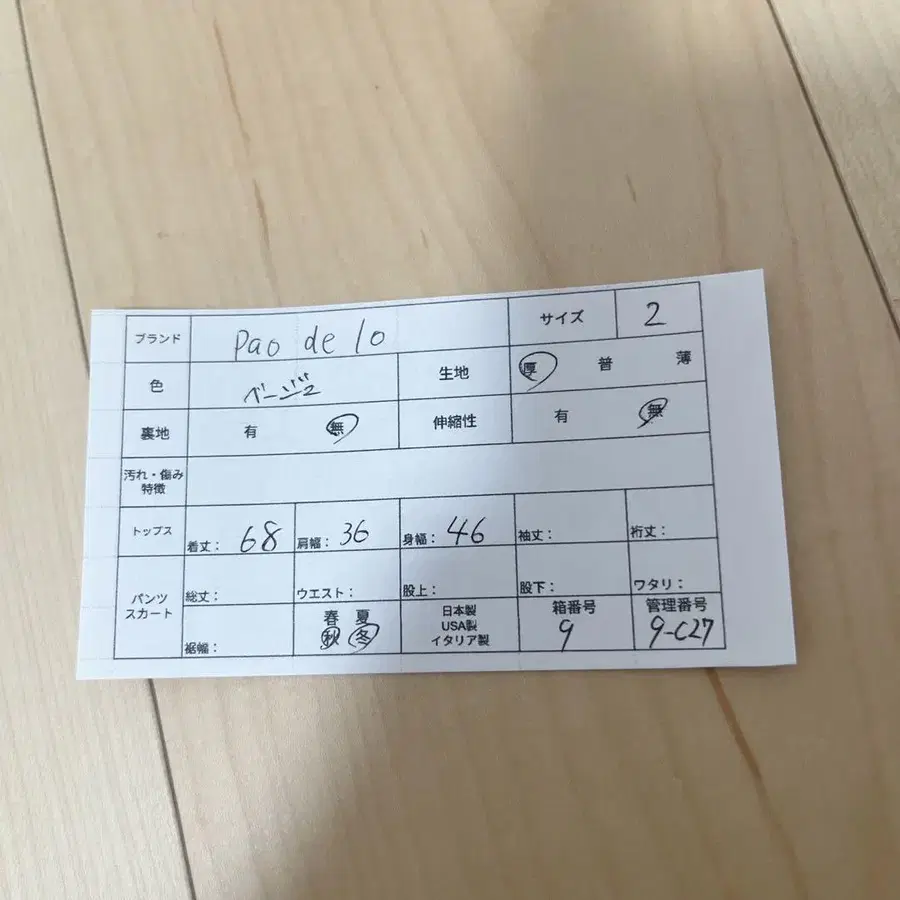 ブランド Pao de lo サイズ 2
色 ベージュ 生地 厚 普 薄
裏地 有 無 伸縮性 有 無
汚れ・傷み
特徴
トップス 着丈： 68 肩幅： 36 身幅： 46 袖丈： 裄丈：
パンツ
スカート
総丈： ウエスト： 股上： 股下： ワタリ：
裾幅：
春 夏
秋 冬
日本製
USA製
イタリア製
箱番号
9
管理番号
9-C27